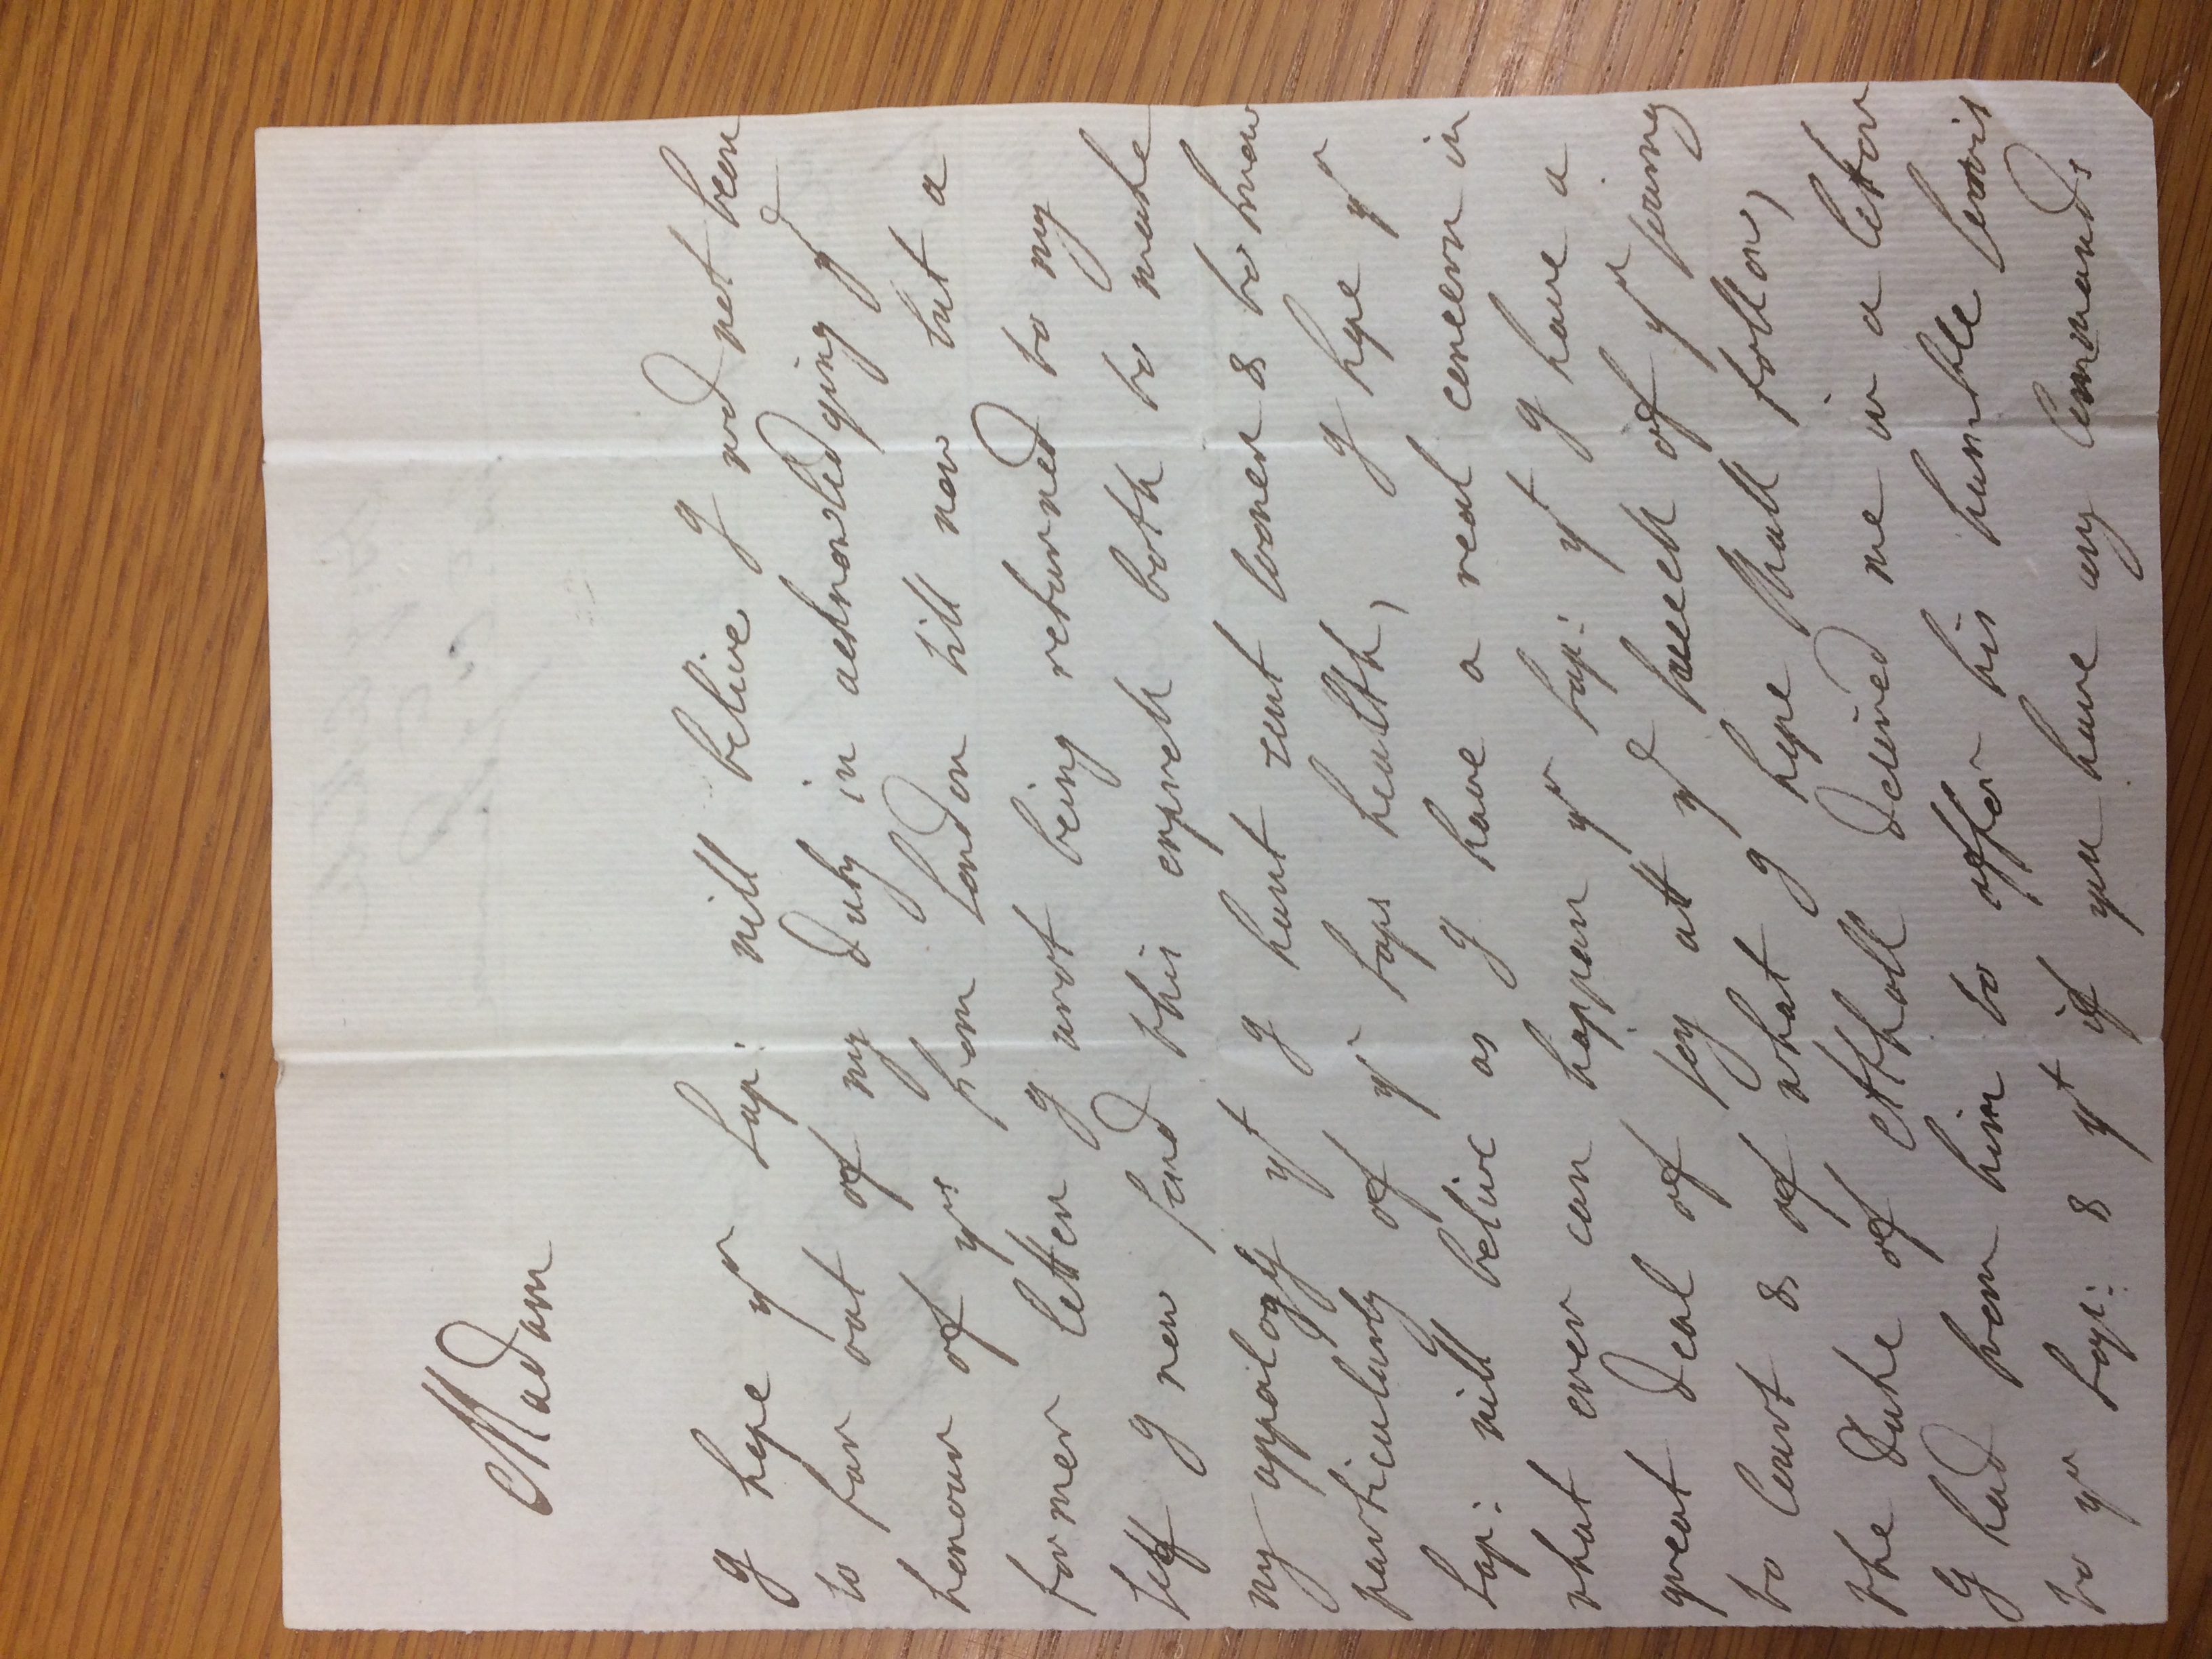 Madam
I hope yr Lap: will belive I wd not been
so far out of my duty in acknowledging ye
honour of yrs from London till now but a
former letter I wrot being returned to my
self I now send this express both to make
my appology yt I hant sent sooner & to know
particularly of yr Laps health, I hope yr
Lap: will belive as I have a real concern in
what ever can happen yr Lap: yt I have a
great deal of joy att ye success of yr journy
to Court & of what I hope shall follow,
the Duke of Atholl desired me in a letter
I had from him to offer his humble servis
to yr Lap: & yt if you have any Commands